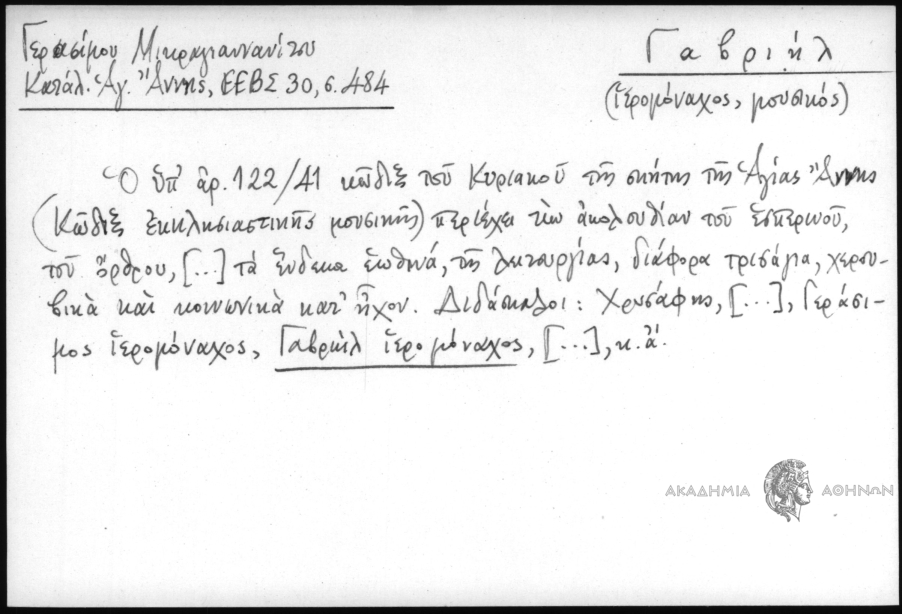 Γερασίμου Μικραγιαννανίτου
Κατάλ. Ἁγ. Ἄννης, ΕΕΒΣ 30, σ. 484
Γαβριήλ
(ἱερομόναχος, μουσικός)
Ὁ ὑπ' ἀρ. 122/41 κῶδιξ τοῦ Κυριακοῦ τῆς σκήτης τῆς Ἁγίας Ἄννης
(Κῶδιξ ἐκκλησιαστικῆς μουσικῆς) περιέχει τὴν ἀκολουθίαν τοῦ ἑσπερινοῦ,
τοῦ ὄρθρου, [...] τὰ ἕνδεκα ἑωθινά, τῆς λειτουργίας, διάφορα τρισάγια, χερου-
βικὰ καὶ κοινωνικὰ κατ' ἦχον. Διδάσκαλοι: Χρυσάφης, [...], Γεράσι-
μος ἱερομόναχος, Γαβριὴλ ἱερομόναχος, [...], κ.ἄ.
ΑΚΑΔΗΜΙΑ ΑΘΗΝΩΝ